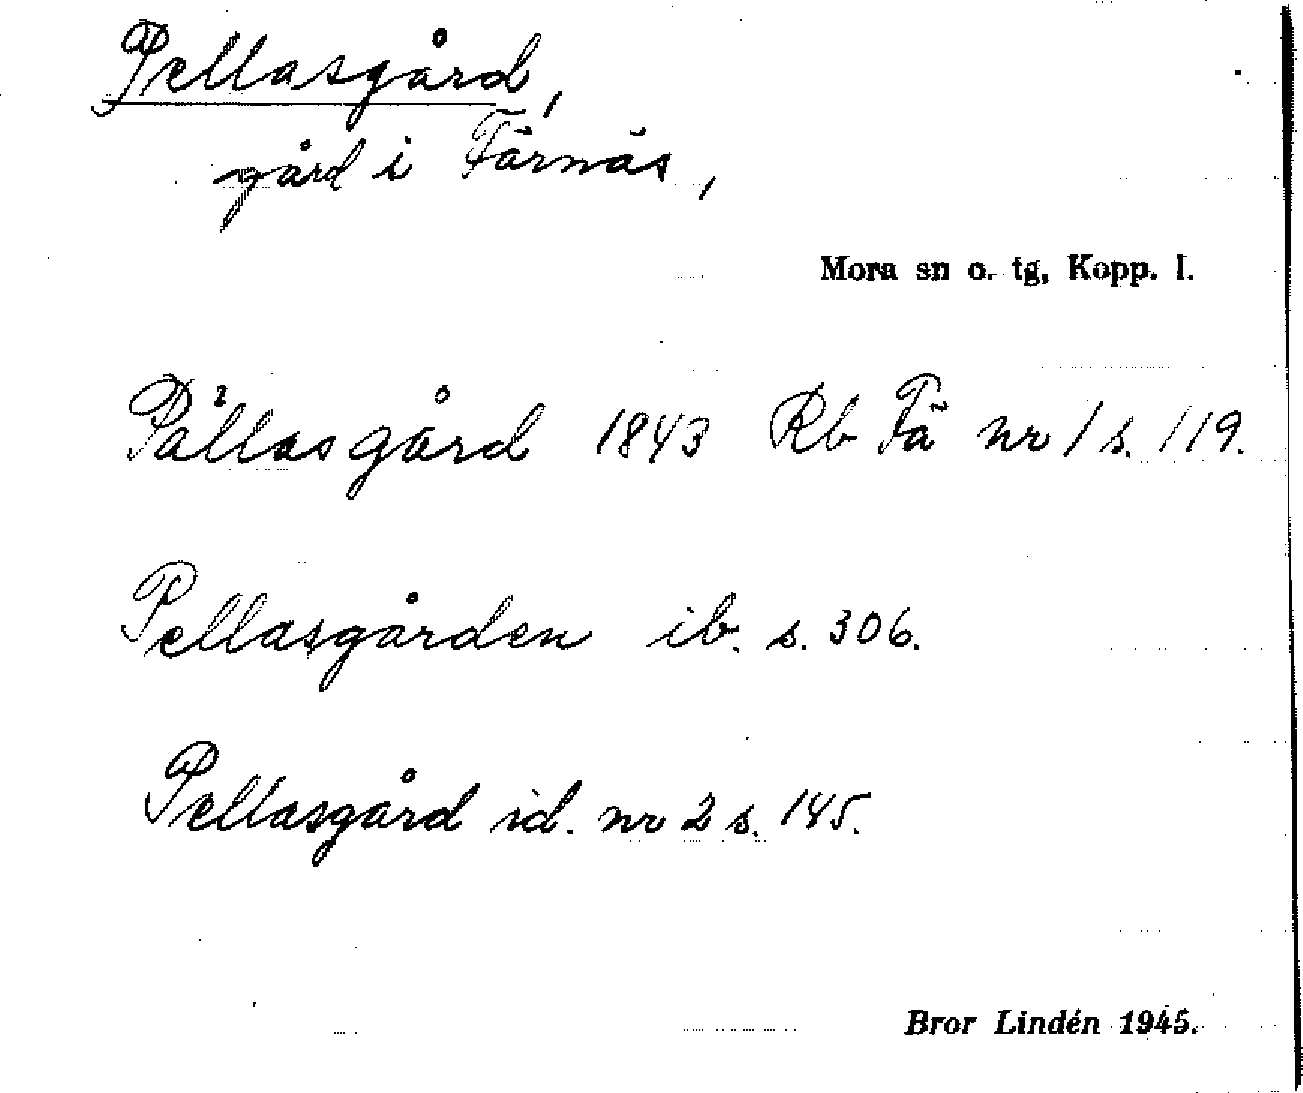 Pellasgård,
gård i Färnäs,
Mora sn o. tg, Kopp. l.
Pållasgård 1843 Rb Fä nr 1 s. 119.
Pellasgården ib. s. 306.
Pellasgård id. nr 2 s. 145.
Bror Lindén 1945.